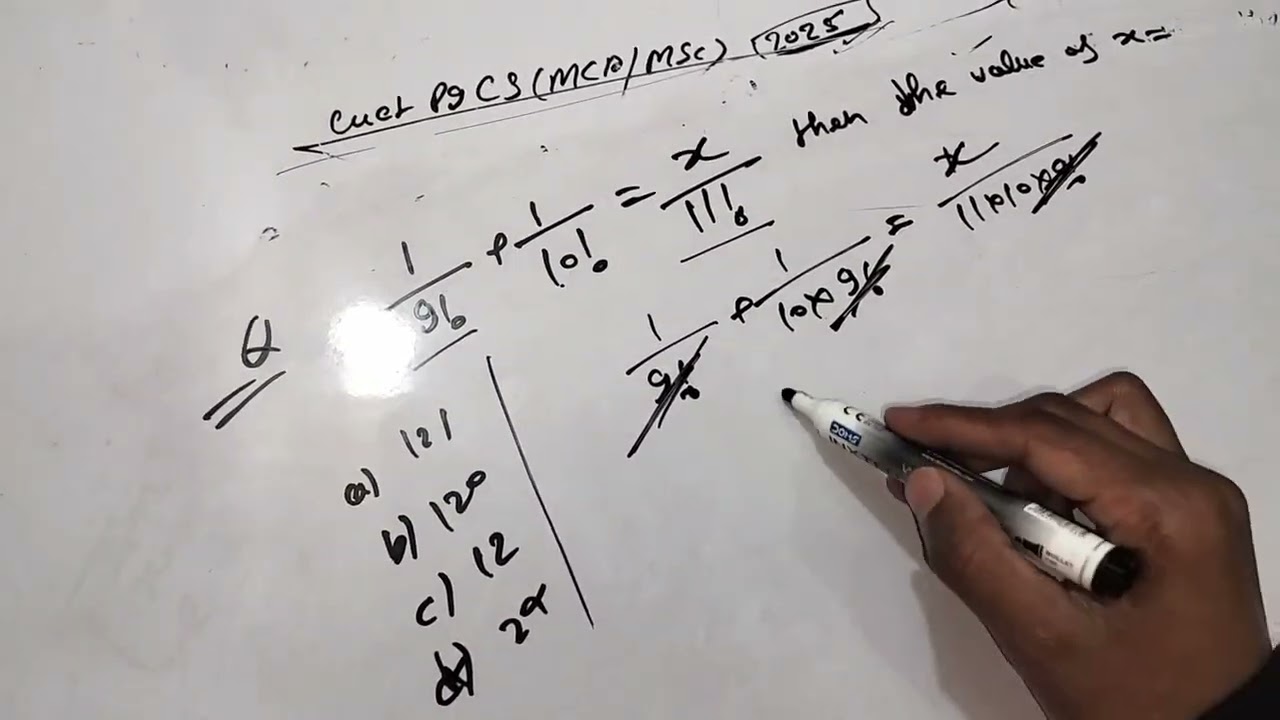 Cuet Pg CS (MCA/MSc) 2025
Q 1/9! + 1/10! = x/11! then the value of x=
1/9! + 1/10×9! = x/11×10×9!
a) 121
b) 120
c) 12
d)
JOMS